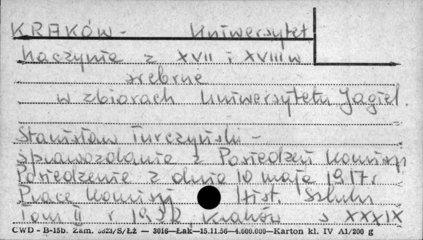 KRAKÓW - Uniwersytet
Naczynie z XVII i XVIII w
srebrne
w zbiorach Uniwersytetu Jagiel.
Stanisław Turczyński -
Sprawozdanie z Posiedzeń Komisji
Posiedzenie z dnia 10 maja 1917 r
Prace Komisji Hist. Sztuki
Tom II r 1922 Kraków s XXXIX
CWD - B-15b. Zam. 5523/S/ŁŻ — 3016—Łak—15.11.56—4.000.000—Karton kl. IV A1/200 g